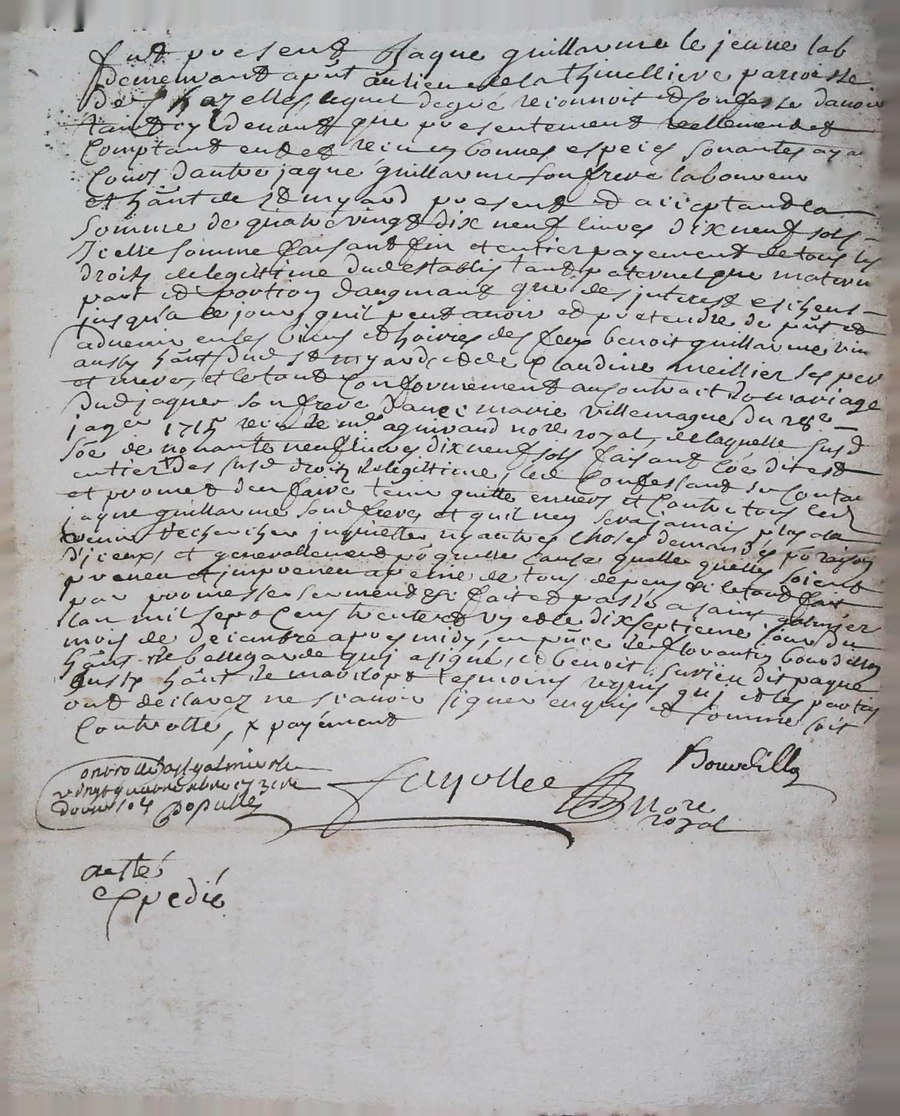 fut present Jaque guillaume le jeune lab
demeurant a pnt au lieu de la thivelliere paroisse
de Chazelles lequel de gré reconnoit et confesse d'avoir
tant cy devant que presentement reellement et
comptant eu et receu en bonnes especes sonantes ayant
Cours d'autre jaque guillaume son frere laboureur
et hãnt de St myard present et acceptant la
somme de quatre vingt dix neuf livres dix neuf sols
Icelle somme faisant fin et entier payement de tous les
droits de legittime dud establis tant paternel que maternel
part et portion d'augmant que des interest eschens
jusqu'a ce jour, quil peut avoir et pretendre de pnt et
advenir en les biens et hoiries des feus benoit guillaume viv
aussy hãnt dud St myard et de Claudine meillier ses per
et mere, et le tout Conformement au Contract de mariage
dud jaques son frere d'avec marie Villemagne du 28e
janer 1715 receu me aguiraud nore royal, de laquelle susd
soe de nonante neuf livres dix neuf sols faisant lèe dit est
entier des susd droits de legittime, led Confessant se Contan
et promet d'en faire tenir quitte envers et Contre tous led
jaque guillaume sond frere, et quil n'en sera jamais plus a la
venir recherché inquietté ny autres choses demandés po raison
d'iceux et generallement po quelle cause quelle quelles soient
preveu et impreveu a peine de tous depens dt le tout fait
par promesse serment &c fait et passé a saint galmier
l'an mil sept Cens trente et un et le dix septieme jour du
mois de decembre apres midy, en pnce de florantin bourdillon
hãnt de bellegarde qui a signé, et benoit
aussy hãnt de tesmoins requis qui et les parties
ont declarez ne scavoir signer enquis et sommé soit
Controllé, x payement
Bourdillon
Controllé a St galmier le
vingt quatre xbre 1731
douze sols
fayolle
Nore
royal
acte
expedié